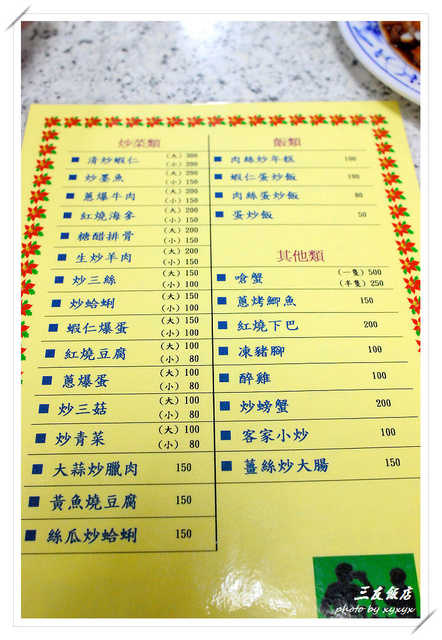 炒菜類
清炒蝦仁 (大) 300 (小) 200
炒墨魚 (大) 200 (小) 150
蔥爆牛肉 (大) 200 (小) 150
紅燒海參 (大) 200 (小) 150
糖醋排骨 (大) 200 (小) 150
生炒羊肉 (大) 200 (小) 150
炒三絲 (大) 150 (小) 100
炒蛤蜊 (大) 150 (小) 100
蝦仁爆蛋 (大) 150 (小) 100
紅燒豆腐 (大) 100 (小) 80
蔥爆蛋 (大) 100 (小) 80
炒三菇 (大) 100 (小) 80
炒青菜 (大) 100 (小) 80
大蒜炒臘肉 150
黃魚燒豆腐 150
絲瓜炒蛤蜊 150
飯類
肉絲炒年糕 100
蝦仁蛋炒飯 100
肉絲蛋炒飯 80
蛋炒飯 50
其他類
嗆蟹 (一隻) 500 (半隻) 250
蔥烤鯽魚 150
紅燒下巴 200
凍豬腳 100
醉雞 100
炒螃蟹 200
客家小炒 100
薑絲炒大腸 150
三友飯店
photo by xyxyx